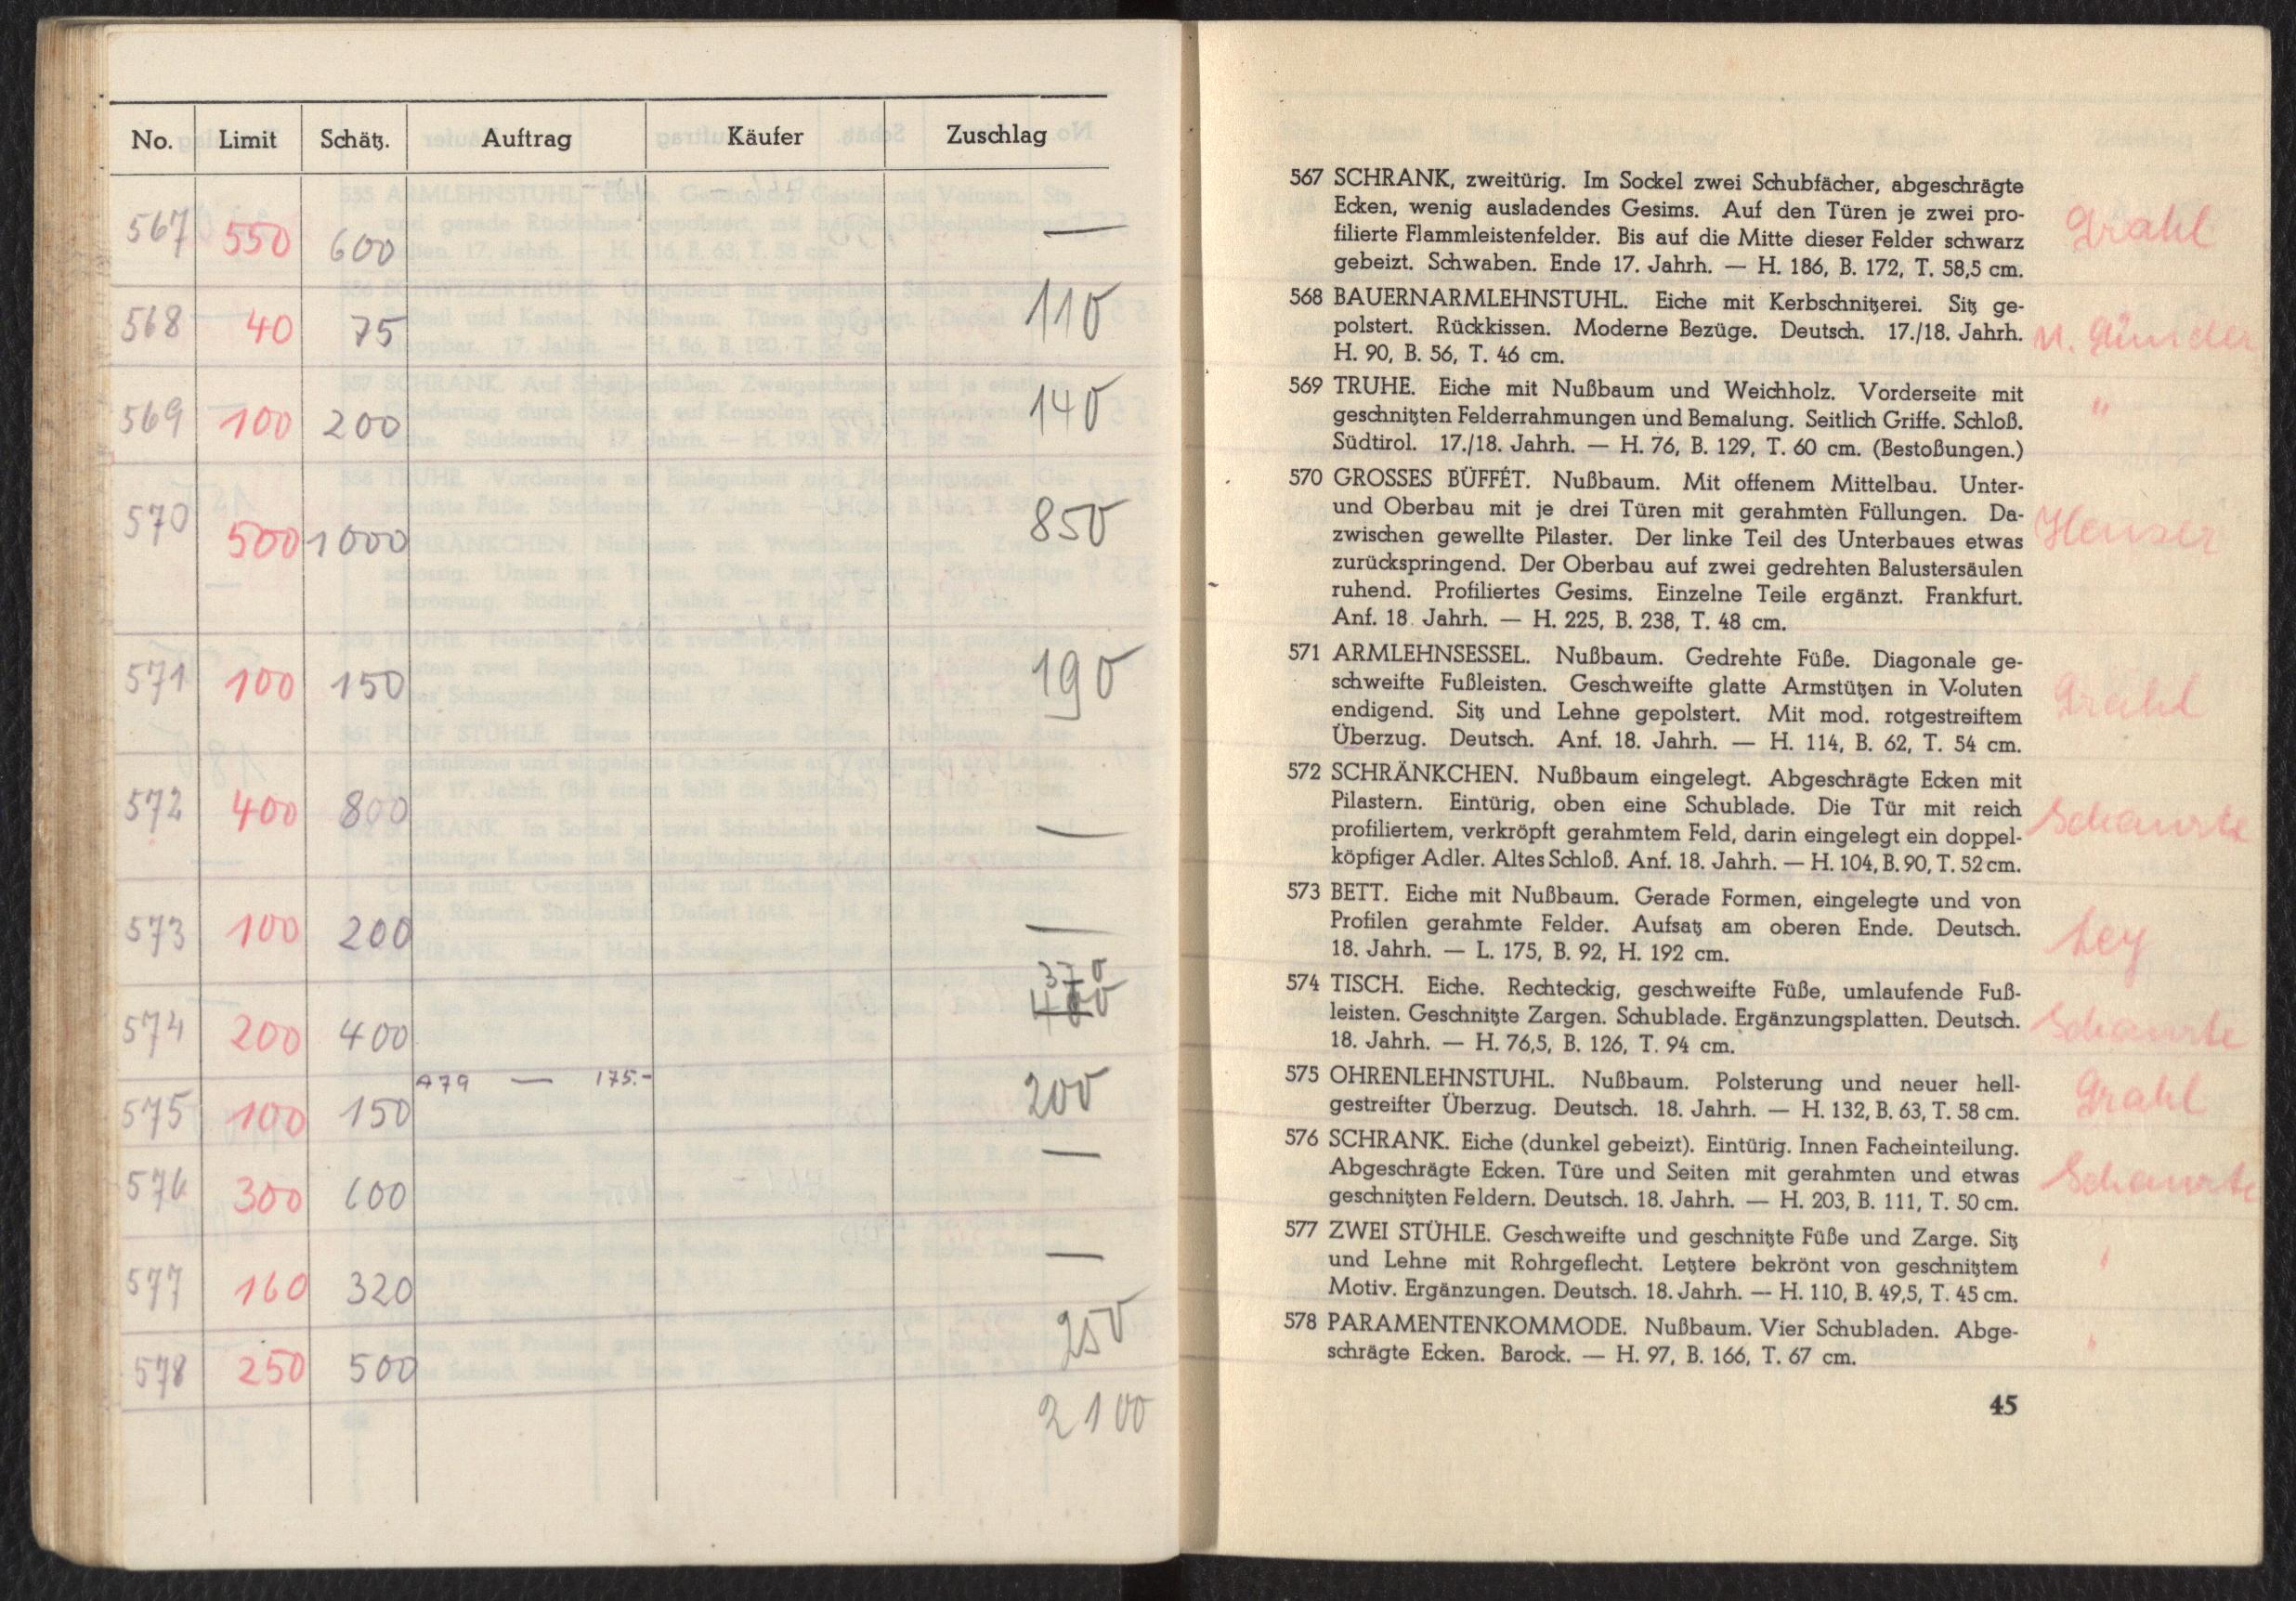 No. Limit Schätz. Auftrag Käufer Zuschlag
567 550 600 —
568 40 75 110
569 100 200 140
570 500 1000 850
571 100 150 190
572 400 800 —
573 100 200 —
370
574 200 400 400
575 100 150 479 — 175.- 200
576 300 600 —
577 160 320 —
578 250 500 250
2100
567 SCHRANK, zweitürig. Im Sockel zwei Schubfächer, abgeschrägte
Ecken, wenig ausladendes Gesims. Auf den Türen je zwei pro-
filierte Flammleistenfelder. Bis auf die Mitte dieser Felder schwarz
gebeizt. Schwaben. Ende 17. Jahrh. — H. 186, B. 172, T. 58,5 cm.
Grahl
568 BAUERNARMLEHNSTUHL. Eiche mit Kerbschnitzerei. Sitz ge-
polstert. Rückkissen. Moderne Bezüge. Deutsch. 17./18. Jahrh.
H. 90, B. 56, T. 46 cm.
569 TRUHE. Eiche mit Nußbaum und Weichholz. Vorderseite mit
geschnitzten Felderrahmungen und Bemalung. Seitlich Griffe. Schloß.
Südtirol. 17./18. Jahrh. — H. 76, B. 129, T. 60 cm. (Bestoßungen.)
"
570 GROSSES BÜFFÉT. Nußbaum. Mit offenem Mittelbau. Unter-
und Oberbau mit je drei Türen mit gerahmten Füllungen. Da-
zwischen gewellte Pilaster. Der linke Teil des Unterbaues etwas
zurückspringend. Der Oberbau auf zwei gedrehten Balustersäulen
ruhend. Profiliertes Gesims. Einzelne Teile ergänzt. Frankfurt.
Anf. 18. Jahrh. — H. 225, B. 238, T. 48 cm.
Heuser
571 ARMLEHNSESSEL. Nußbaum. Gedrehte Füße. Diagonale ge-
schweifte Fußleisten. Geschweifte glatte Armstützen in Voluten
endigend. Sitz und Lehne gepolstert. Mit mod. rotgestreiftem
Überzug. Deutsch. Anf. 18. Jahrh. — H. 114, B. 62, T. 54 cm.
Grahl
572 SCHRÄNKCHEN. Nußbaum eingelegt. Abgeschrägte Ecken mit
Pilastern. Eintürig, oben eine Schublade. Die Tür mit reich
profiliertem, verkröpft gerahmtem Feld, darin eingelegt ein doppel-
köpfiger Adler. Altes Schloß. Anf. 18. Jahrh. — H. 104, B. 90, T. 52 cm.
Schaurte
573 BETT. Eiche mit Nußbaum. Gerade Formen, eingelegte und von
Profilen gerahmte Felder. Aufsatz am oberen Ende. Deutsch.
18. Jahrh. — L. 175, B. 92, H. 192 cm.
Ley
574 TISCH. Eiche. Rechteckig, geschweifte Füße, umlaufende Fuß-
leisten. Geschnitzte Zargen. Schublade. Ergänzungsplatten. Deutsch.
18. Jahrh. — H. 76,5, B. 126, T. 94 cm.
Schaurte
575 OHRENLEHNSTUHL. Nußbaum. Polsterung und neuer hell-
gestreifter Überzug. Deutsch. 18. Jahrh. — H. 132, B. 63, T. 58 cm.
Grahl
576 SCHRANK. Eiche (dunkel gebeizt). Eintürig. Innen Facheinteilung.
Abgeschrägte Ecken. Türe und Seiten mit gerahmten und etwas
geschnitzten Feldern. Deutsch. 18. Jahrh. — H. 203, B. 111, T. 50 cm.
Schaurte
577 ZWEI STÜHLE. Geschweifte und geschnitzte Füße und Zarge. Sitz
und Lehne mit Rohrgeflecht. Letztere bekrönt von geschnitztem
Motiv. Ergänzungen. Deutsch. 18. Jahrh. — H. 110, B. 49,5, T. 45 cm.
578 PARAMENTENKOMMODE. Nußbaum. Vier Schubladen. Abge-
schrägte Ecken. Barock. — H. 97, B. 166, T. 67 cm.
45